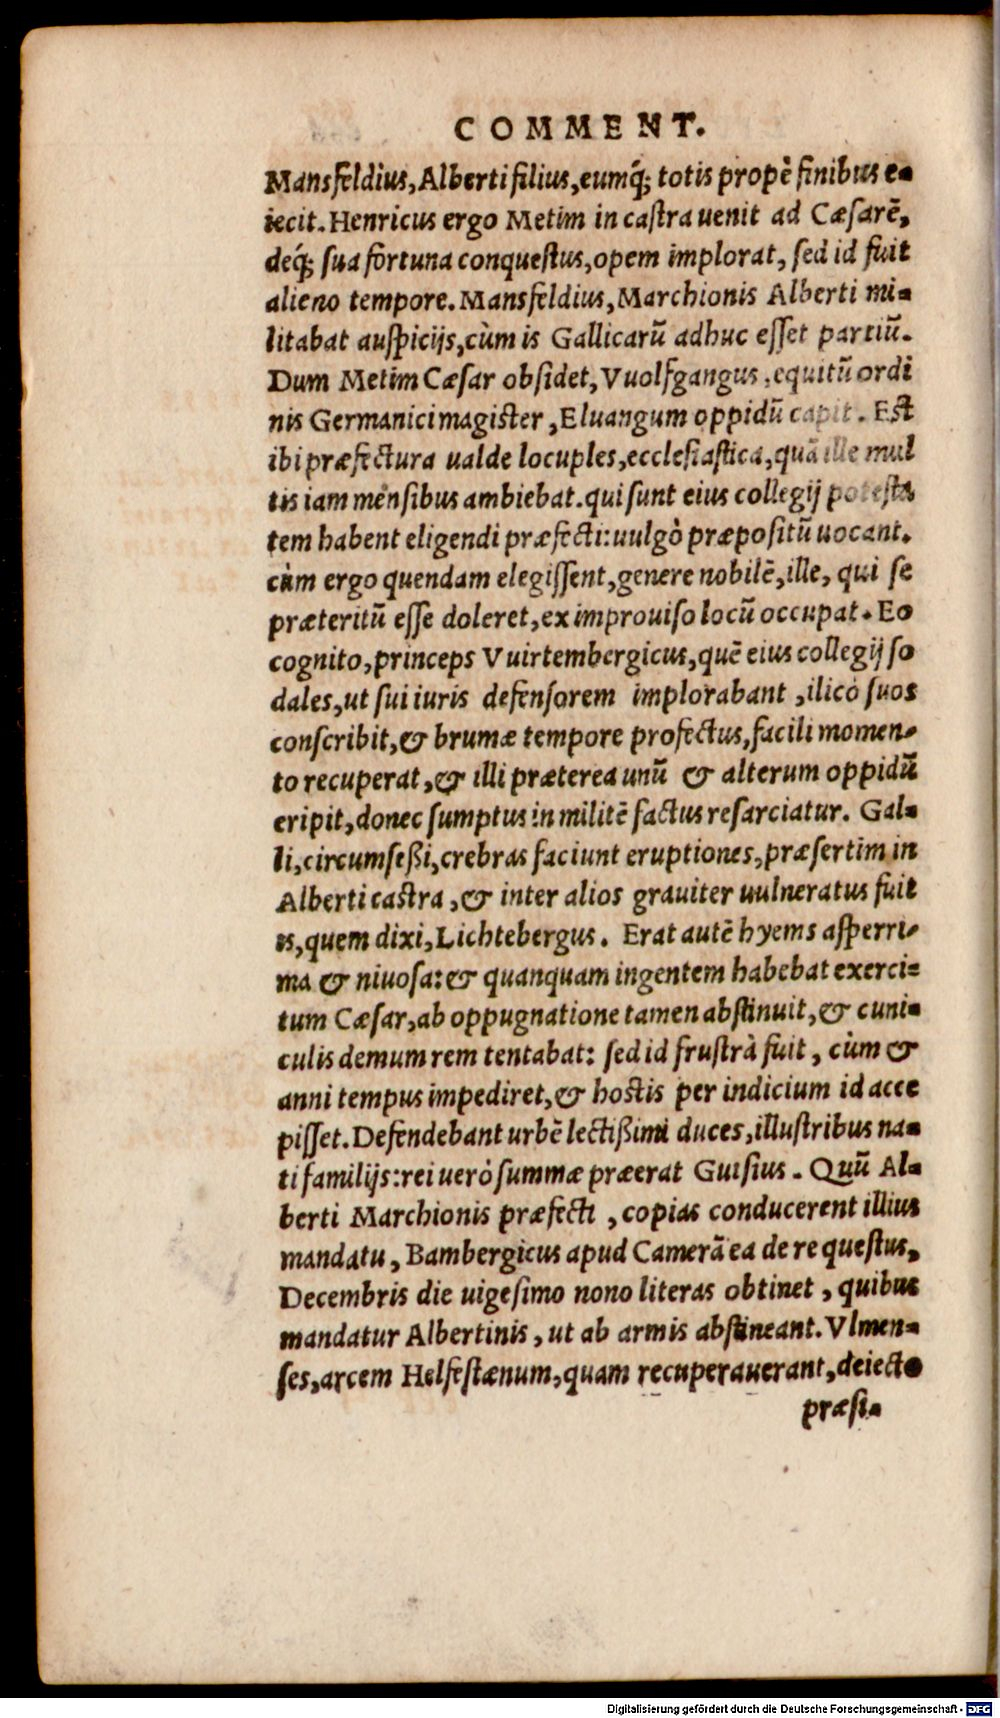 COMMENT.
Mansfeldius, Alberti filius, eumq́; totis propè finibus e-
iecit. Henricus ergo Metim in castra uenit ad Cæsarē,
deq́; sua fortuna conquestus, opem implorat, sed id fuit
alieno tempore. Mansfeldius, Marchionis Alberti mi-
litabat auspicijs, cùm is Gallicarū adhuc esset partiū.
Dum Metim Cæsar obsidet, Vuolfgangus, equitū ordi
nis Germanici magister, Eluangum oppidū capit. Est
ibi præfectura ualde locuples, ecclesiastica, quā ille mul
tis iam mensibus ambiebat. qui sunt eius collegij potesta
tem habent eligendi præfecti: uulgò præpositū uocant.
cùm ergo quendam elegissent, genere nobilē, ille, qui se
præteritū esse doleret, ex improuiso locū occupat. Eo
cognito, princeps Vuirtembergicus, quē eius collegij so
dales, ut sui iuris defensorem implorabant, ilico suos
conscribit, & brumæ tempore profectus, facili momen-
to recuperat, & illi præterea unū & alterum oppidū
eripit, donec sumptus in militē factus resarciatur. Gal-
li, circumseßi, crebras faciunt eruptiones, præsertim in
Alberti castra, & inter alios grauiter uulneratus fuit
is, quem dixi, Lichtebergus. Erat autē hyems asperri-
ma & niuosa: & quanquam ingentem habebat exerci-
tum Cæsar, ab oppugnatione tamen abstinuit, & cuni-
culis demum rem tentabat: sed id frustrà fuit, cùm &
anni tempus impediret, & hostis per indicium id acce
pisset. Defendebant urbē lectißimi duces, illustribus na-
ti familijs: rei uerò summæ præerat Guisius. Quū Al-
berti Marchionis præfecti, copias conducerent illius
mandatu, Bambergicus apud Camerā ea de re questus,
Decembris die uigesimo nono literas obtinet, quibus
mandatur Albertinis, ut ab armis abstineant. Vlmen-
ses, arcem Helfestænum, quam recuperauerant, deiecto
præsi-
Digitalisierung gefördert durch die Deutsche Forschungsgemeinschaft - DFG